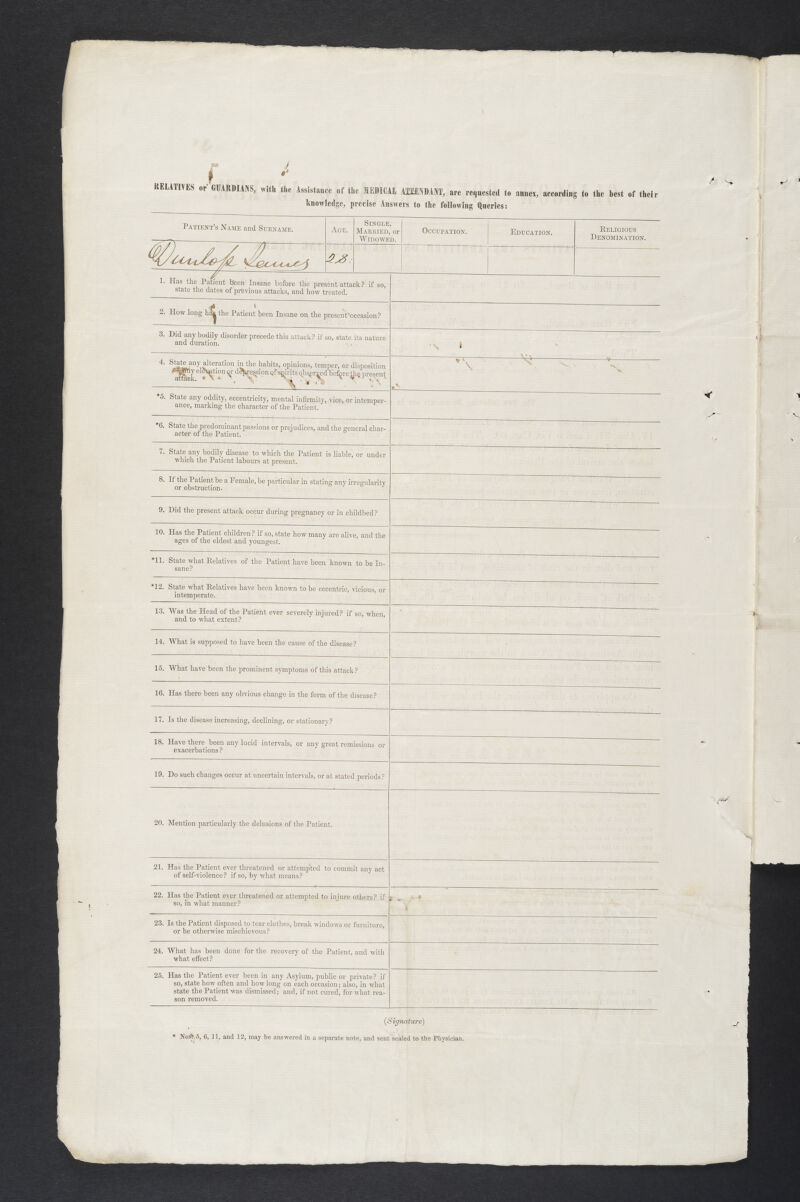 RELATIVES or GUARDIANS, with the Assistance of the MEDICAL ATTENDANT, are requested to annex, according to the best of their
knowledge, precise Answers to the following Queries:
PATIENT'S NAME and SURNAME.
AGE.
SINGLE,
MARRIED, or
WIDOWED.
OCCUPATION.
EDUCATION.
RELIGIOUS
DENOMINATION.
Dunlop James
28
1. Has the Patient been Insane before the present attack? if so,
state the dates of previous attacks, and how treated.
2. How long has the Patient been Insane on the present occasion?
3. Did any bodily disorder precede this attack? if so, state its nature
and duration.
4. State any alteration in the habits, opinions, temper, or disposition
any elevation or depression of spirits observed before the present
attack.
*5. State any oddity, eccentricity, mental infirmity, vice, or intemper-
ance, marking the character of the Patient.
*6. State the predominant passions or prejudices, and the general char-
acter of the Patient.
7. State any bodily disease to which the Patient is liable, or under
which the Patient labours at present.
8. If the Patient be a Female, be particular in stating any irregularity
or obstruction.
9. Did the present attack occur during pregnancy or in childbed?
10. Has the Patient children? if so, state how many are alive, and the
ages of the eldest and youngest.
*11. State what Relatives of the Patient have been known to be In-
sane?
*12. State what Relatives have been known to be eccentric, vicious, or
intemperate.
13. Was the Head of the Patient ever severely injured? if so, when,
and to what extent?
14. What is supposed to have been the cause of the disease?
15. What have been the prominent symptoms of this attack?
16. Has there been any obvious change in the form of the disease?
17. Is the disease increasing, declining, or stationary?
18. Have there been any lucid intervals, or any great remissions or
exacerbations?
19. Do such changes occur at uncertain intervals, or at stated periods?
20. Mention particularly the delusions of the Patient.
21. Has the Patient ever threatened or attempted to commit any act
of self-violence? if so, by what means?
22. Has the Patient ever threatened or attempted to injure others? if
so, in what manner?
23. Is the Patient disposed to tear clothes, break windows or furniture,
or be otherwise mischievous?
24. What has been done for the recovery of the Patient, and with
what effect?
25. Has the Patient ever been in any Asylum, public or private? if
so, state how often and how long on each occasion; also, in what
state the Patient was dismissed; and, if not cured, for what rea-
son removed.
(Signature)
* Nos. 5, 6, 11, and 12, may be answered in a separate note, and sent sealed to the Physician.